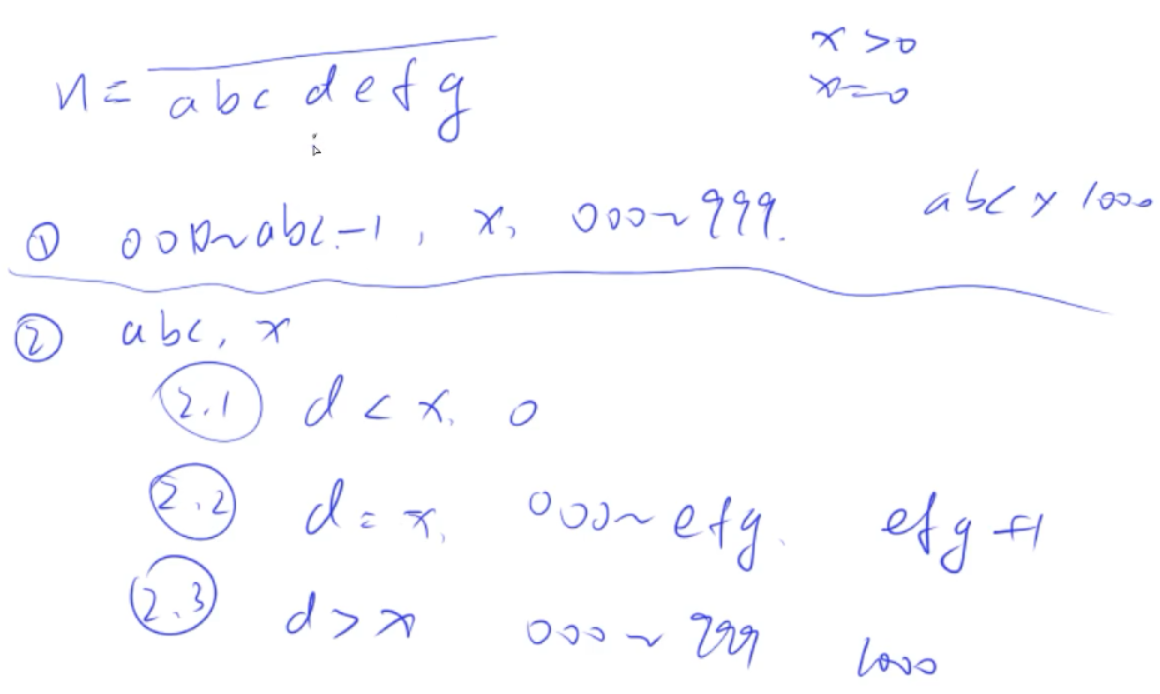 n = abc defg
x > 0
x = 0
① 000~abc-1, x, 000~999. abc × 1000
② abc, x
2.1 d < x, 0
2.2 d = x, 000~efg. efg+1
2.3 d > x 000~999 1000